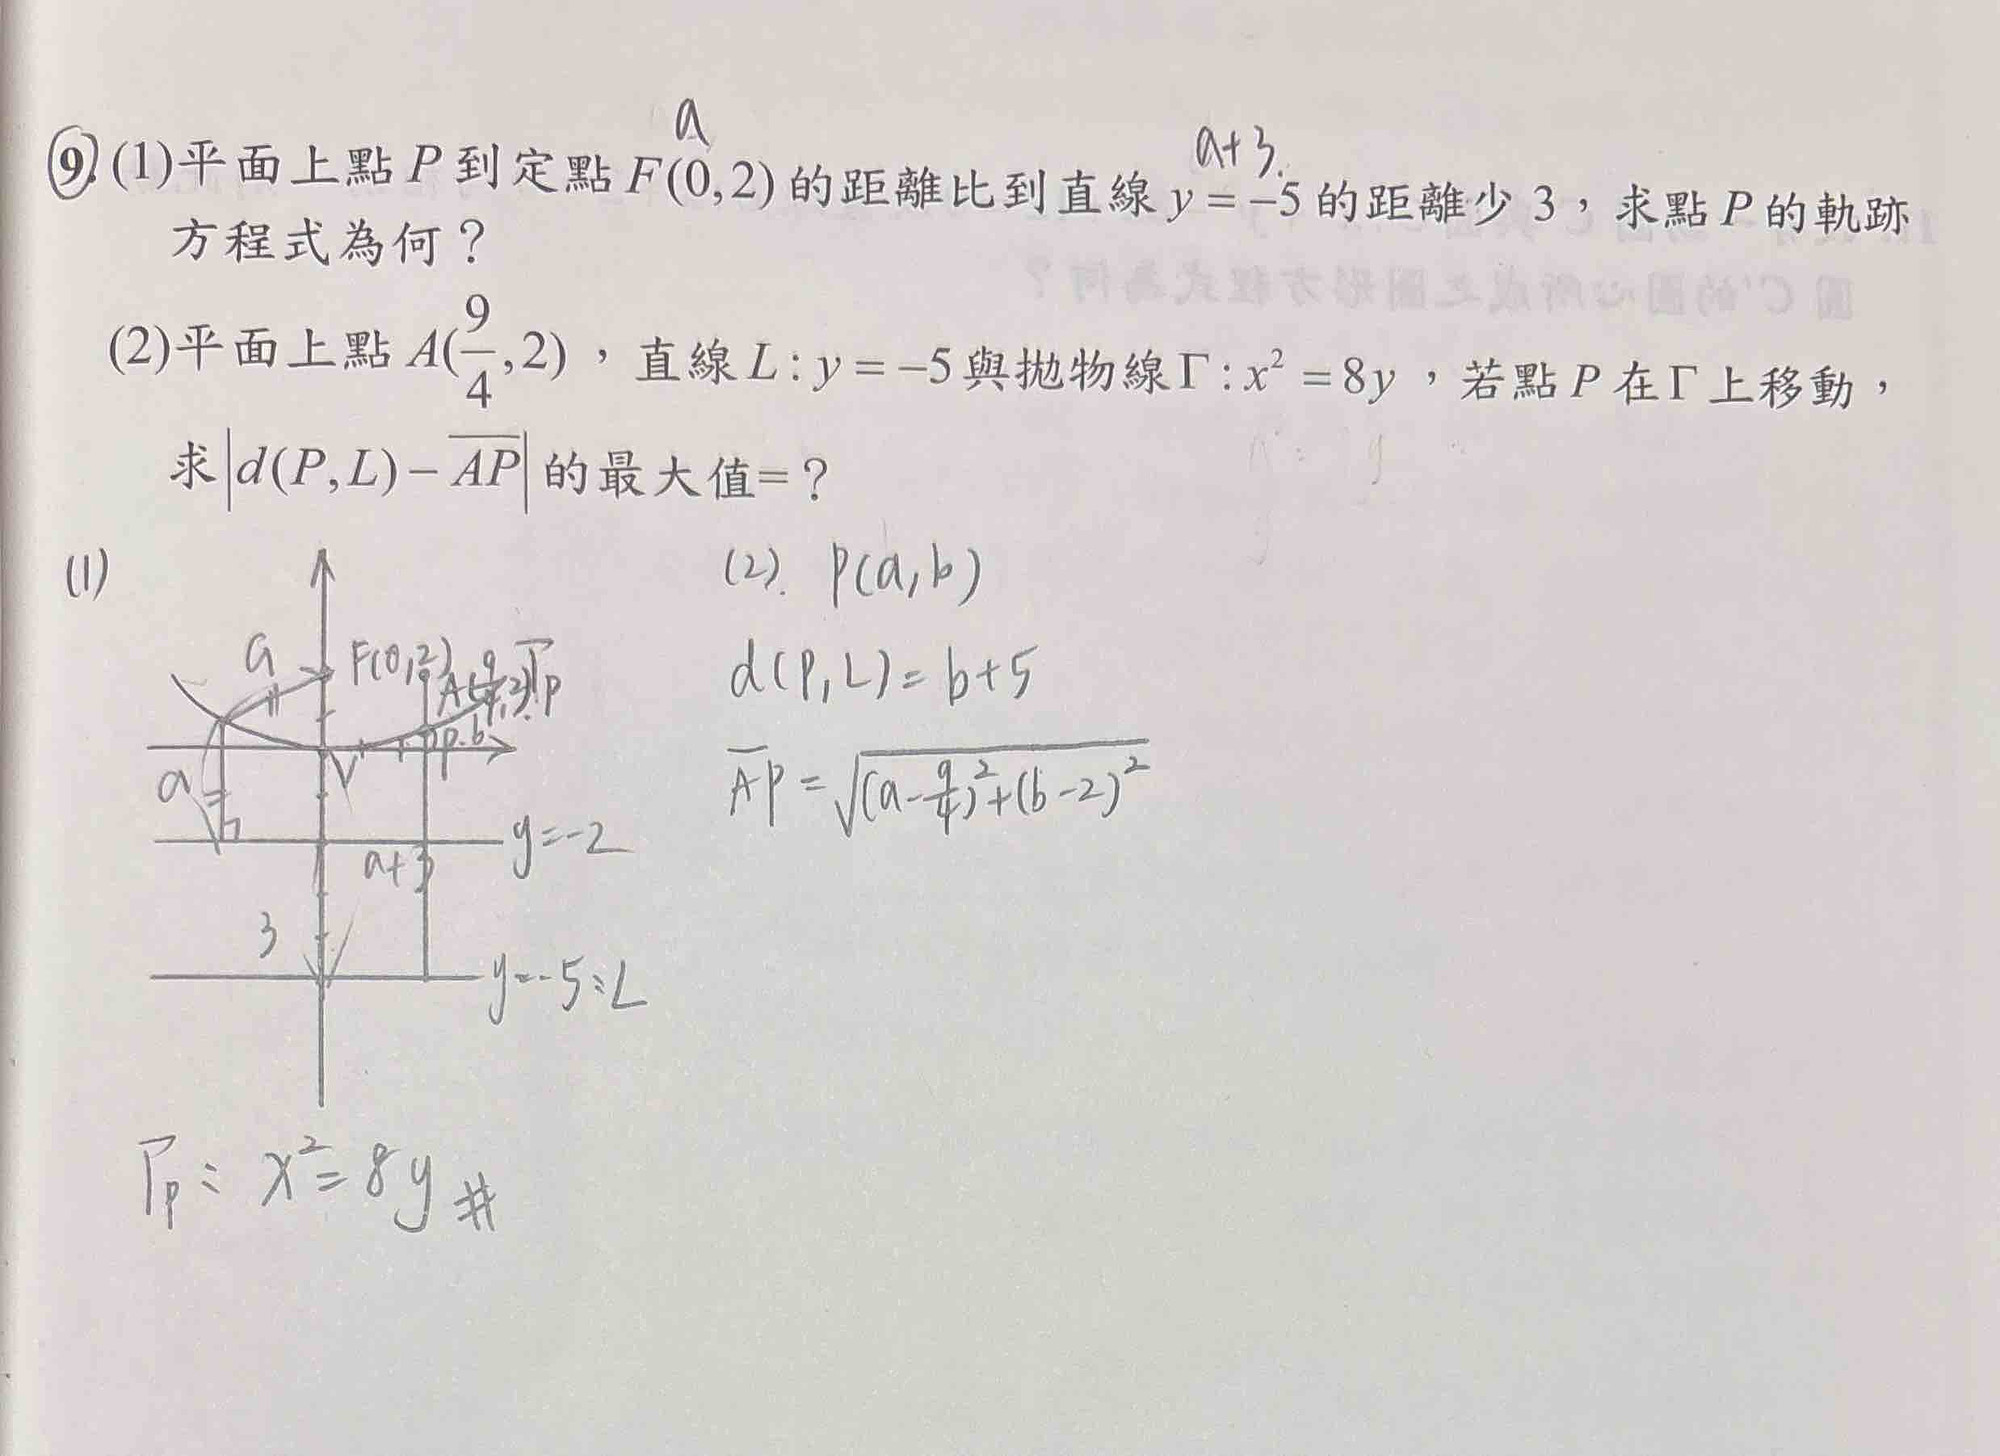 a
a+3
9.(1)平面上點P到定點F(0,2)的距離比到直線y=-5的距離少3,求點P的軌跡
方程式為何?
(2)平面上點A(9/4,2),直線L:y=-5與拋物線Γ:x²=8y,若點P在Γ上移動,
求|d(P,L)-\overline{AP}|的最大值=?
(1)
a
F(0,2)
A(9/4,2)
Γp
V
a
y=-2
a+3
3
y=-5:L
Γp: x²=8y #
(2). P(a,b)
d(P,L)=b+5
\overline{AP}=√((a-9/4)²+(b-2)²)